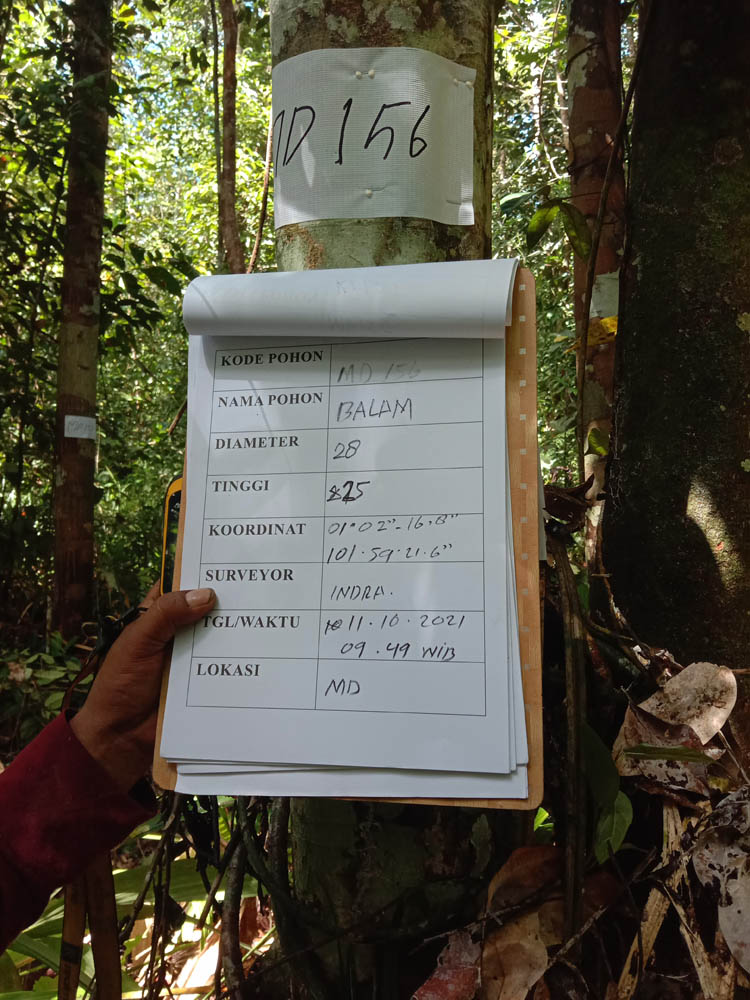 MD 156
KODE POHON MD 156
NAMA POHON BALAM
DIAMETER 28
TINGGI 25
KOORDINAT 01° 02" - 16.8"
101 . 59 . 21 . 6"
SURVEYOR INDRA .
TGL/WAKTU 11 . 10 . 2021
09 . 49 WIB
LOKASI MD